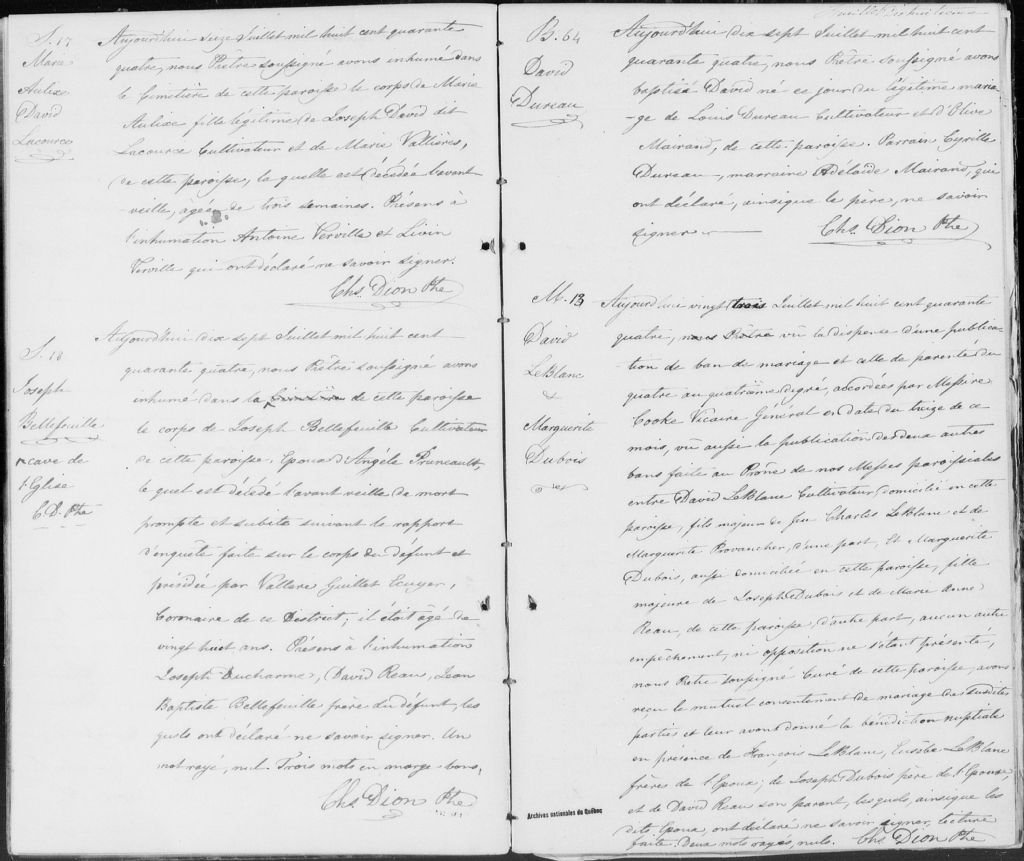 S. 17
Marie
Aulixe
David
Lacource
Aujourd'hui seize Juillet mil huit cent quarante
quatre, nous Prêtre soussigné avons inhumé dans
le Cimetière de cette paroisse le corps de Marie
Aulixe fille légitime de Joseph David dit
Lacource Cultivateur et de Marie Vallières,
de cette paroisse, la quelle est décédée l'avant
-veille, âgée de trois semaines. Présens à
l'inhumation Antoine Verville et Livin
Verville qui ont déclaré ne savoir signer.
Chs. Dion Ptre
S. 18
Joseph
Bellefeuille
cave de
l'Eglise
C. D. Ptre
Aujourd'hui dix sept Juillet mil huit cent
quarante quatre, nous Prêtre soussigné avons
inhumé dans la Cimetière de cette paroisse
le corps de Joseph Bellefeuille Cultivateur
de cette paroisse, Epoux d'Angèle Pruneault,
le quel est décédé l'avant veille de mort
prompte et subite suivant le rapport
d'enquête faite sur le corps du défunt et
présidée par Vallere Guillet Ecuyer,
Coronaire de ce District; il étoit âgé de
vingt huit ans. Présens à l'inhumation
Joseph Ducharme, David Reau, Jean
Baptiste Bellefeuille frère du défunt, les
quels ont déclaré ne savoir signer. Un
mot rayé, nul. Trois mots en marge bons,
Chs Dion Ptre
B. 64
David
Dureau
Aujourd'hui dix sept Juillet mil huit cent
quarante quatre, nous Prêtre soussigné avons
baptisé David né ce jour du légitime maria
-ge de Louis Dureau Cultivateur et d'Olive
Mairand, de cette paroisse. Parrain Cyrille
Dureau, marraine Adélaïde Mairand, qui
ont déclaré, ainsique le père, ne savoir
signer
Chs. Dion Ptre
M. 13
David
LeBlanc
&
Marguerite
Dubois
Aujourd'hui vingt trois Juillet mil huit cent quarante
quatre, nous Prêtre vû la dispense d'une publica-
tion de ban de mariage et celle de parenté du
quatre au quatrième degré, accordées par Messire
Cooke Vicaire Général en date du treize de ce
mois, vû aussi la publication des deux autres
bans faite au Prône de nos Messes paroissiales
entre David LeBlanc Cultivateur, domicilié en cette
paroisse, fils majeur de feu Charles LeBlanc et de
Marguerite Provancher, d'une part, Et Marguerite
Dubois, aussi domiciliée en cette paroisse, fille
majeure de Joseph Dubois et de Marie Anne
Reau, de cette paroisse, d'autre part, aucun autre
empêchement, ni opposition ne s'étant présenté,
nous Prêtre soussigné Curé de cette paroisse, avons
reçu le mutuel consentement de mariage des susdites
parties et leur avons donné la bénédiction nuptiale
en présence de François LeBlanc, Eusèbe LeBlanc
frères de l'Epoux; de Joseph Dubois père de l'Epouse,
et de David Reau son parent, lesquels, ainsique les
dits Epoux, ont déclaré ne savoir signer, lecture
faite. Deux mots rayés, nuls. Chs Dion Ptre
Archives nationales du Québec